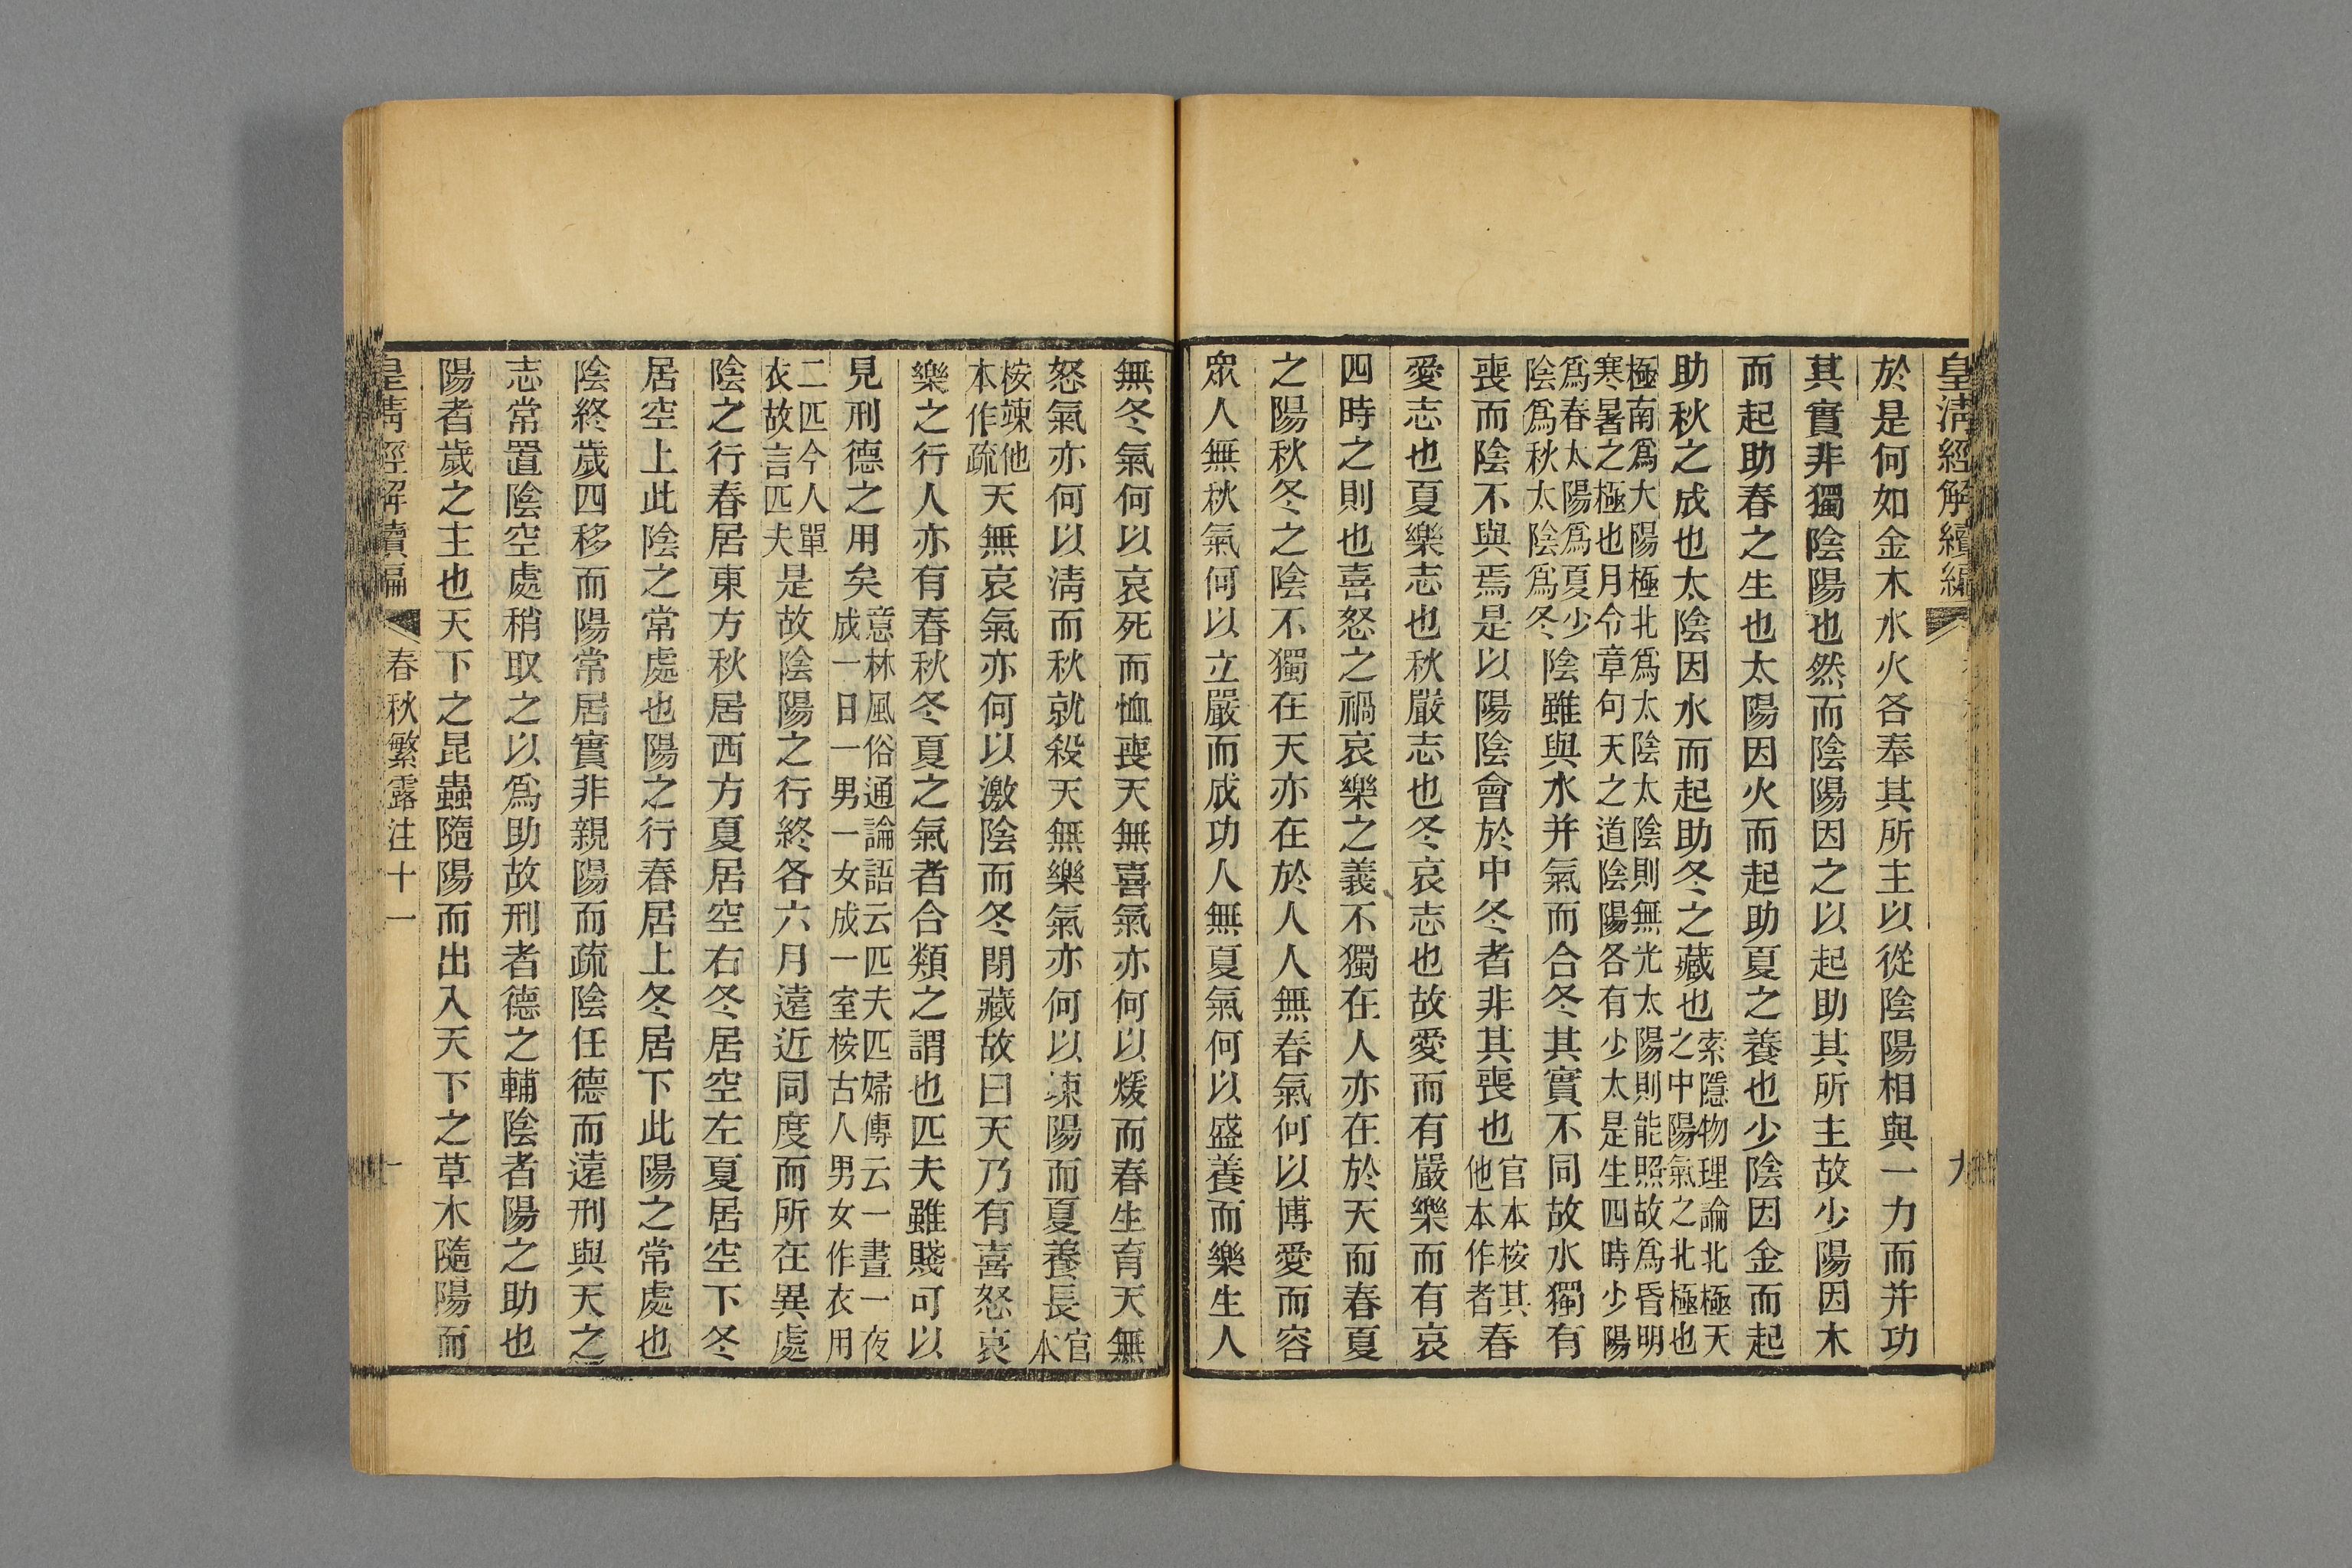 皇清經解續編
於是何如金木水火各奉其所主以從陰陽相與一力而并功
其實非獨陰陽也然而陰陽因之以起助其所主故少陽因木
而起助春之生也太陽因火而起助夏之養也少陰因金而起
助秋之成也太陰因水而起助冬之藏也索隱物理論北極天之中陽氣之北極也
極南爲大陽極北爲太陰太陰則無光太陽則能照故爲昏明寒暑之極也月令章句天之道陰陽各有少太是生四時少陽
爲春太陽爲夏少陰爲秋太陰爲冬陰雖與水并氣而合冬其實不同故水獨有
喪而陰不與焉是以陽陰會於中冬者非其喪也官本桉其他本作者春
愛志也夏樂志也秋嚴志也冬哀志也故愛而有嚴樂而有哀
四時之則也喜怒之禍哀樂之義不獨在人亦在於天而春夏
之陽秋冬之陰不獨在天亦在於人人無春氣何以博愛而容
眾人無秋氣何以立嚴而成功人無夏氣何以盛養而樂生人
無冬氣何以哀死而恤喪天無喜氣亦何以煖而春生育天無
怒氣亦何以清而秋就殺天無樂氣亦何以竦陽而夏養長官本
桉竦他本作疏天無哀氣亦何以激陰而冬閉藏故曰天乃有喜怒哀
樂之行人亦有春秋冬夏之氣者合類之謂也匹夫雖賤可以
見刑德之用矣意林風俗通論語云匹夫匹婦傳云一晝一夜成一日一男一女成一室桉古人男女作衣用
二匹今人單衣故言匹夫是故陰陽之行終各六月遠近同度而所在異處
陰之行春居東方秋居西方夏居空右冬居空左夏居空下冬
居空上此陰之常處也陽之行春居上冬居下此陽之常處也
陰終歲四移而陽常居實非親陽而疏陰任德而遠刑與天之
志常置陰空處稍取之以爲助故刑者德之輔陰者陽之助也
陽者歲之主也天下之昆蟲隨陽而出入天下之草木隨陽而
皇清經解續編 春秋繁露注十一